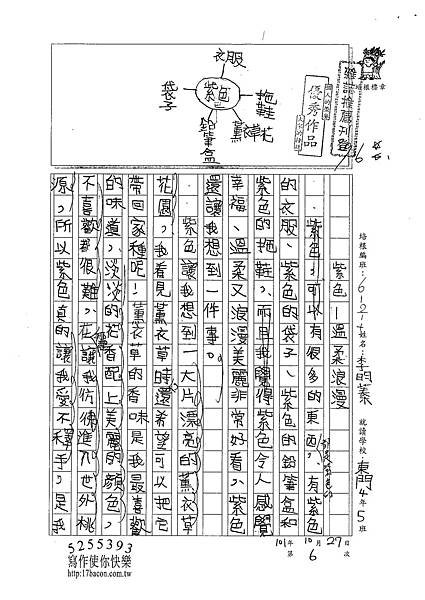 衣服
袋子
紫色
拖鞋
鉛筆盒
薰衣草花
優秀作品
雜誌推薦刊登
培根標章
培根編班：
姓名：李昀蓁
就讀學校：東門4年5班
紫色—溫柔浪漫
紫色，可以有很多的東西，有紫色
的衣服、紫色的袋子、紫色的鉛筆盒和
紫色的拖鞋，而且我覺得紫色令人感覺
幸福、溫柔又浪漫美麗非常好看，紫色
還讓我想到一件事。
紫色讓我想到一大片漂亮的薰衣草
花園，我看見薰衣草時還希望可以把它
帶回家種呢！薰衣草的香味是我最喜歡
的味道，淡淡的花香配上美麗的顏色，
不喜歡都很難，在讓我仿彿進入世外桃
源，所以紫色真的讓我愛不釋手，是我
101年10月27日
第6次
5255393
寫作使你快樂
http://17bacon.com.tw